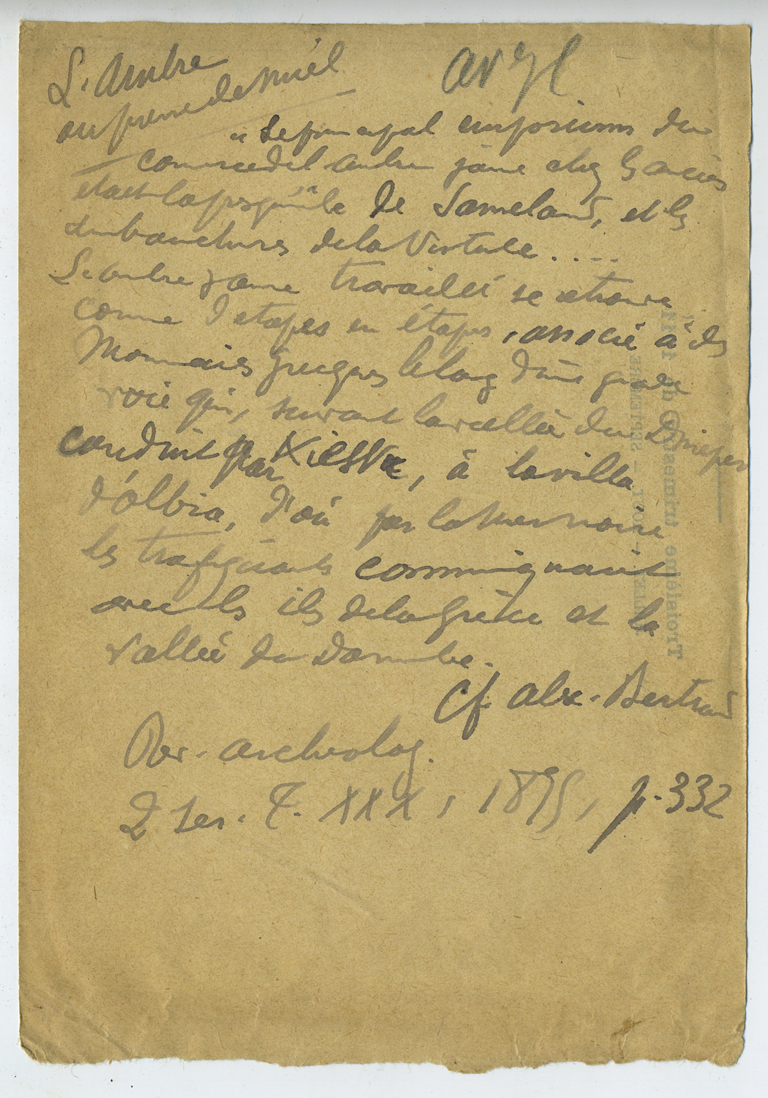 L'Ambre
au pierre de miel
"Le principal emporium du
commerce de l'ambre jaune chez les anciens
était la presqu'île de Sameland, et les
embouchures de la Vistule . . . .
L'ambre jaune travaillé se retrouve
comme d'etapes en étapes, associé à des
Monnaies grecques le long d'une grande
voie qui, suivant la vallée du Dnieper
conduit par Kiew, à la villa
d'Olbia, d'où par la Mer noire
les trafiquants communiquaient
avec les iles de la Grèce et la
vallée du Danube.
Cf. Alex. Bertrand
Rev. archeolog.
2 ser. T. XXX, 1875, p. 332